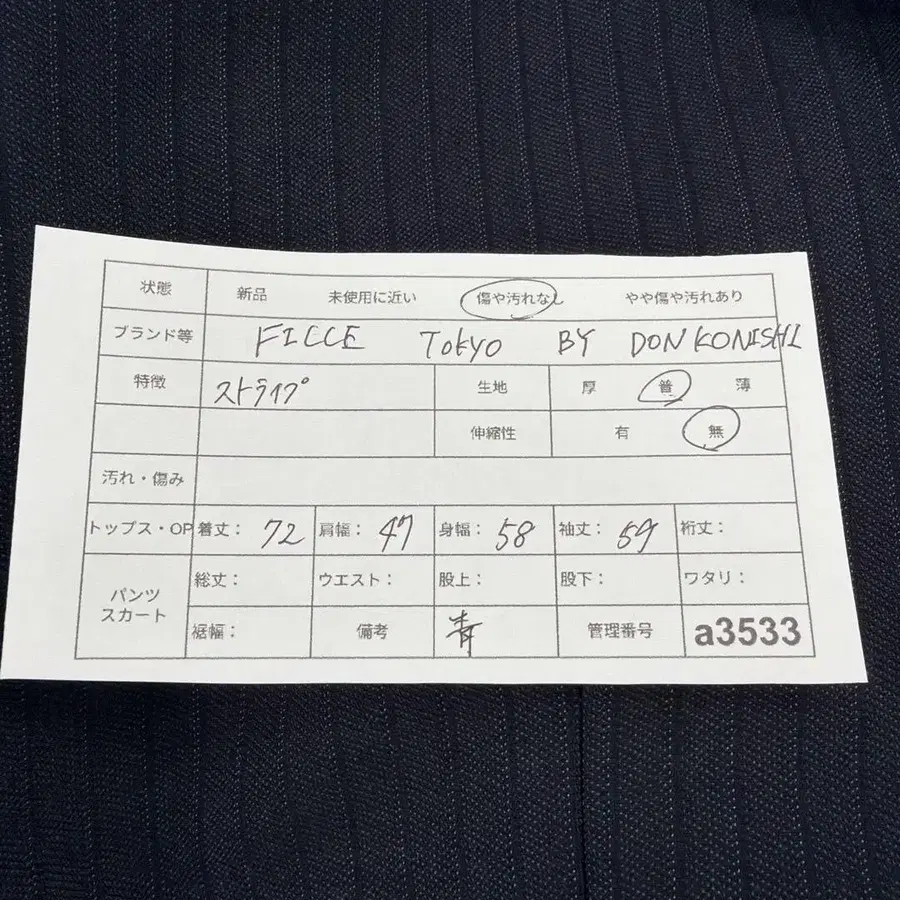 状態 新品 未使用に近い 傷や汚れなし やや傷や汚れあり
ブランド等 FICCE Tokyo BY DON KONISHI
特徴 ストライプ 生地 厚 普 薄
伸縮性 有 無
汚れ・傷み
トップス・OP 着丈: 72 肩幅: 47 身幅: 58 袖丈: 59 裄丈:
パンツ スカート 総丈: ウエスト: 股上: 股下: ワタリ:
裾幅: 備考 青 管理番号 a3533